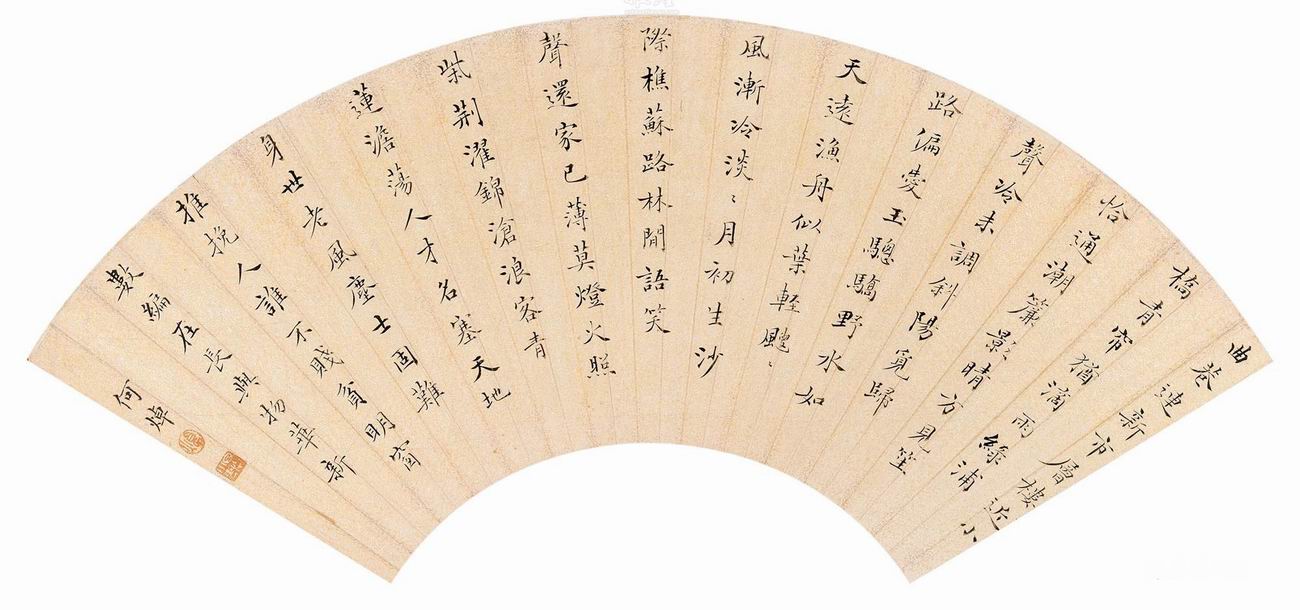 曲巷連新市層樓近小
橋青帘猶滴雨綠浦
恰通潮簾影晴方見笙
聲冷未調斜陽覓歸
路偏愛玉驄驕野水如
天遠漁舟似葉輕颼〻
風漸冷淡〻月初生沙
際樵蘇路林間語笑
聲還家已薄莫燈火照
柴荆濯錦滄浪客青
蓮澹蕩人才名塞天地
身世老風塵士固難
推挽人誰不賤貧明窗
數編在長與物華新
何焯